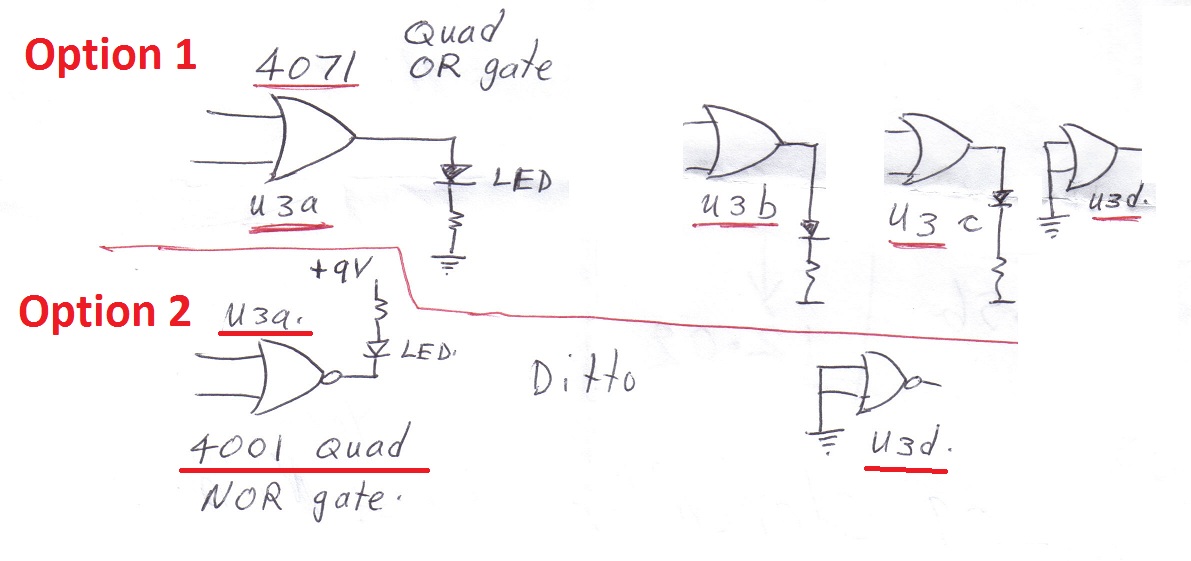 Option 1
4071
Quad
OR gate
LED
U3a
U3b
U3c
U3d.
+9V
Option 2
U3a.
LED.
Ditto
4001 Quad
NOR gate.
U3d.